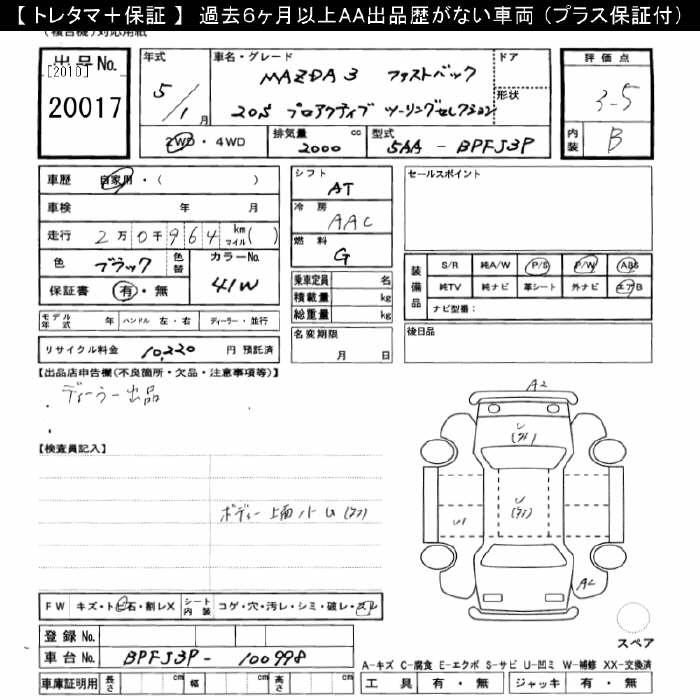 【 トレタマ＋保証 】 過去６ヶ月以上ＡＡ出品歴がない車両（プラス保証付）
(複合機)対応用紙
出品No.
[2010]
20017
年式
5/1月
車名・グレード
MAZDA3 ファストバック
20S プロアクティブ ツーリングセレクション
ドア
形状
2WD・4WD
排気量 2000 cc
型式 5AA - BPFJ3P
評価点
3.5
内装 B
車歴 自家用・( )
車検 年 月
走行 2万0千964 km マイル( )
色 ブラック 色替
カラーNo. 41W
保証書 有・無
モデル年式 年 ハンドル 左・右 ディーラー・並行
リサイクル料金 10,220 円 預託済
シフト AT
冷房 AAC
燃料 G
乗車定員 名
積載量 kg
総重量 kg
名変期限
月 日
セールスポイント
装備品
S/R 純A/W P/S P/W ABS
純TV 純ナビ 革シート 外ナビ エアB
ナビ型番：
後日品
【出品店申告欄(不良箇所・欠品・注意事項等)】
ディーラー出品
【検査員記入】
ボディー上面ハトU(タワ)
A2
U
U
U1
A2
FW キズ・トビ石・割レX
シート内装 コゲ・穴・汚レ・シミ・破レ・スレ
登録No.
車台No. BPFJ3P - 100998
車庫証明用 長さ cm 幅 cm 高さ cm
スペア
A-キズ C-腐食 E-エクボ S-サビ U-凹ミ W-補修 XX-交換済
工具 有・無 ジャッキ 有・無